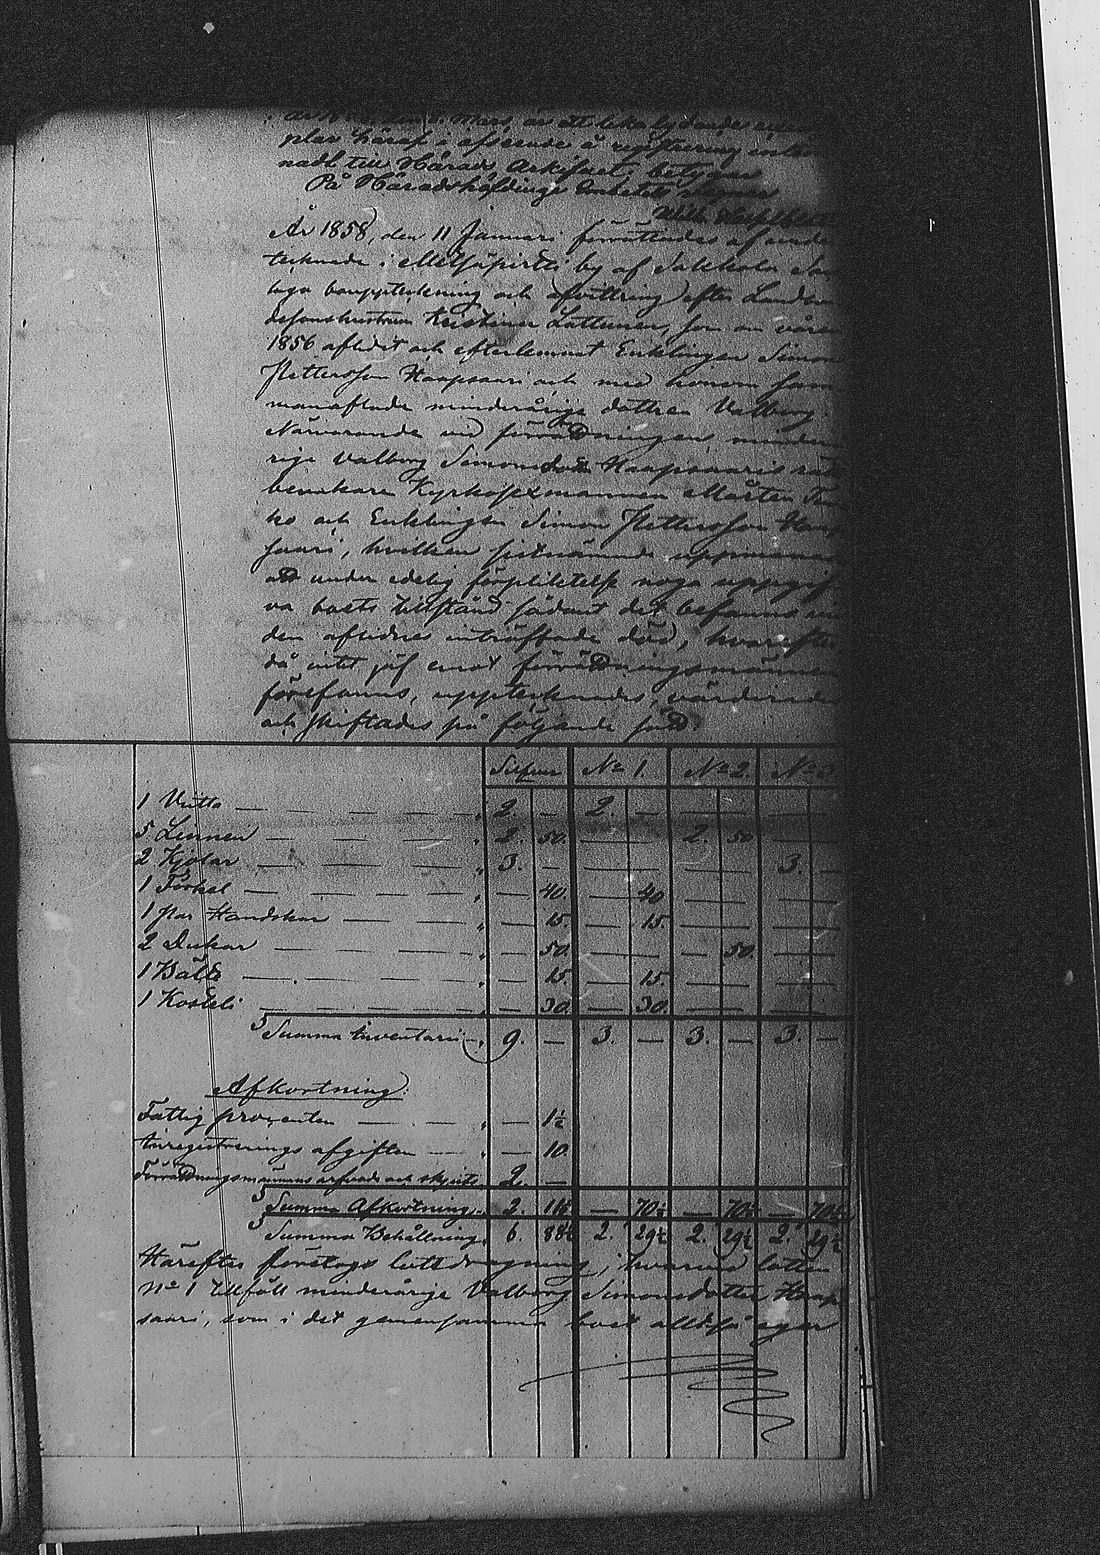 den 2. Mars, är ett lika lydande exem
plar häraf i afseende å registrering inläm
nadt till Härads Arkifvet, betygar
På Häradshöfdinge Embetets vägnar
År 1858, den 11 Januari förrättades af under
tecknade i Metsäpirtti by af Sakkola So
laga bouppteckning och afvittring efter Landbon
dehustrun Kristina Lattunen, som om våren
1856 aflidit och efterlemnat Enklingen Simon
Pettersson Haapsaari och med honom sam
manaflade minderåriga dottren Valborg.
Närvarande vid förrättningen minderå
rige Valborg Simonsdotter Haapsaaris rätts
bevakare Kyrkosexmannen Mårten
ko och Enklingen Simon Pettersson Haap
saari, hvilken sistnämnde uppmanades
att under edelig förpliktelse noga uppgif
va boets tillstånd sådant det befanns vid
den aflidnes inträffade död, hvarefter
då intet jäf emot förrättningsmännen
förefanns, upptecknades, värderades
och skiftades på följande sätt.
Silfver No 1. No 2 No 3
1 Viitta 2. — 2. —
5 Linnen 2. 50. — 2. 50
2 Kjolar 3. — 3. —
1 Förkel — 40. — 40
1 par Handskar — 15. — 15.
2 Dukar — 50. — 50.
1 Bälte — 15. — 15.
1 Kosteli — 30. — 30.
Summa Inventarii 9. — 3. — 3. — 3. —
Afkortning:
Fattig procenten — 1½
Inregistrerings afgiften — 10
Förrättningsmännens arfvode och skjuts 2. —
Summa Afkortning 2. 11½ — 70½ — 70½ — 70½
Summa Behållning 6. 88½ 2. 29½ 2. 29½ 2. 29½
Härefter företogs lottdragning, hvarvid lotten
No 1 tillföll minderårige Valborg Simonsdotter Haap
saari, som i det gemensamma boet alltså eger